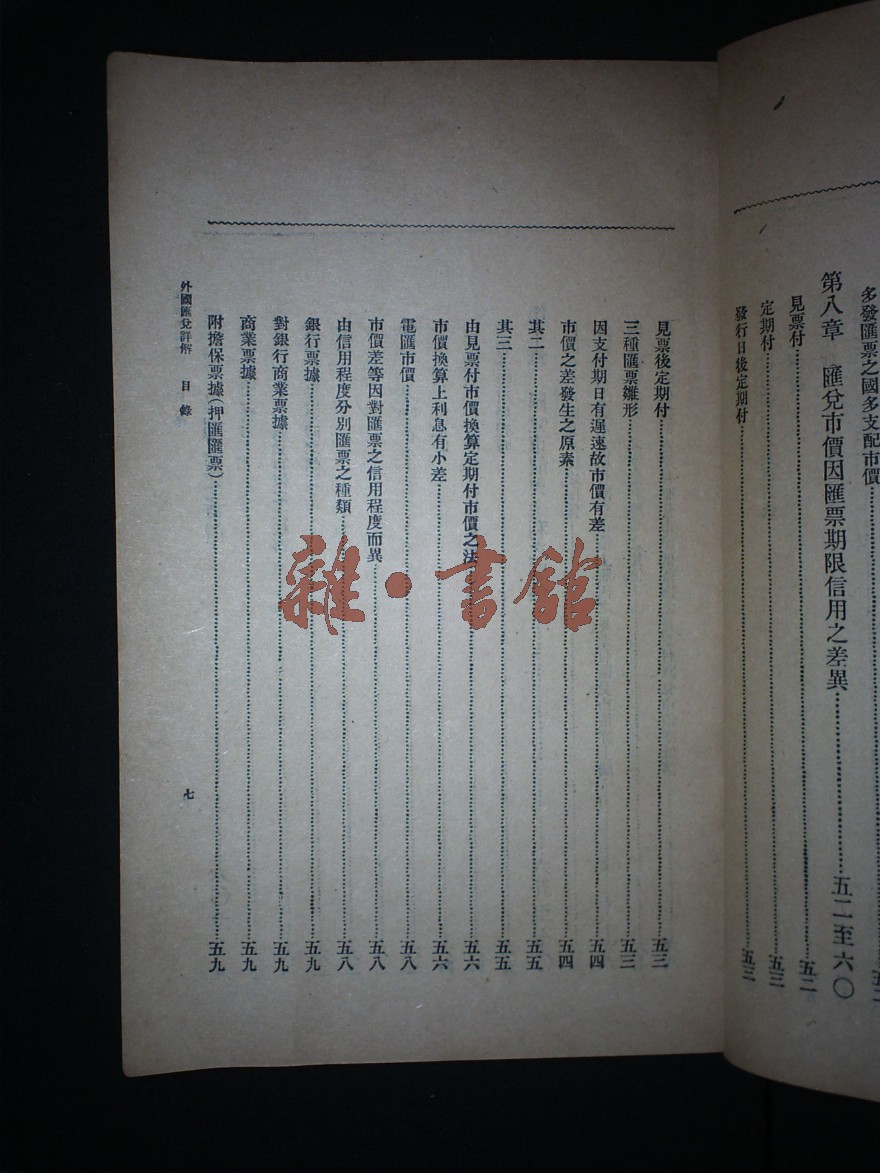 多發匯票之國多支配市價
第八章　匯兌市價因匯票期限信用之差異……五二至六〇
見票付……五二
定期付……五三
發行日後定期付……五三
見票後定期付……五三
三種匯票雛形……五三
因支付期日有遲速故市價有差……五四
市價之差發生之原素……五四
其二……五五
其三……五五
由見票付市價換算定期付市價之法……五六
市價換算上利息有小差……五六
電匯市價……五八
市價差等因對匯票之信用程度而異……五八
由信用程度分別匯票之種類……五八
銀行票據……五九
對銀行商業票據……五九
商業票據……五九
附擔保票據（押匯匯票）……五九
外國匯兌詳解　目錄　七
雜·書館